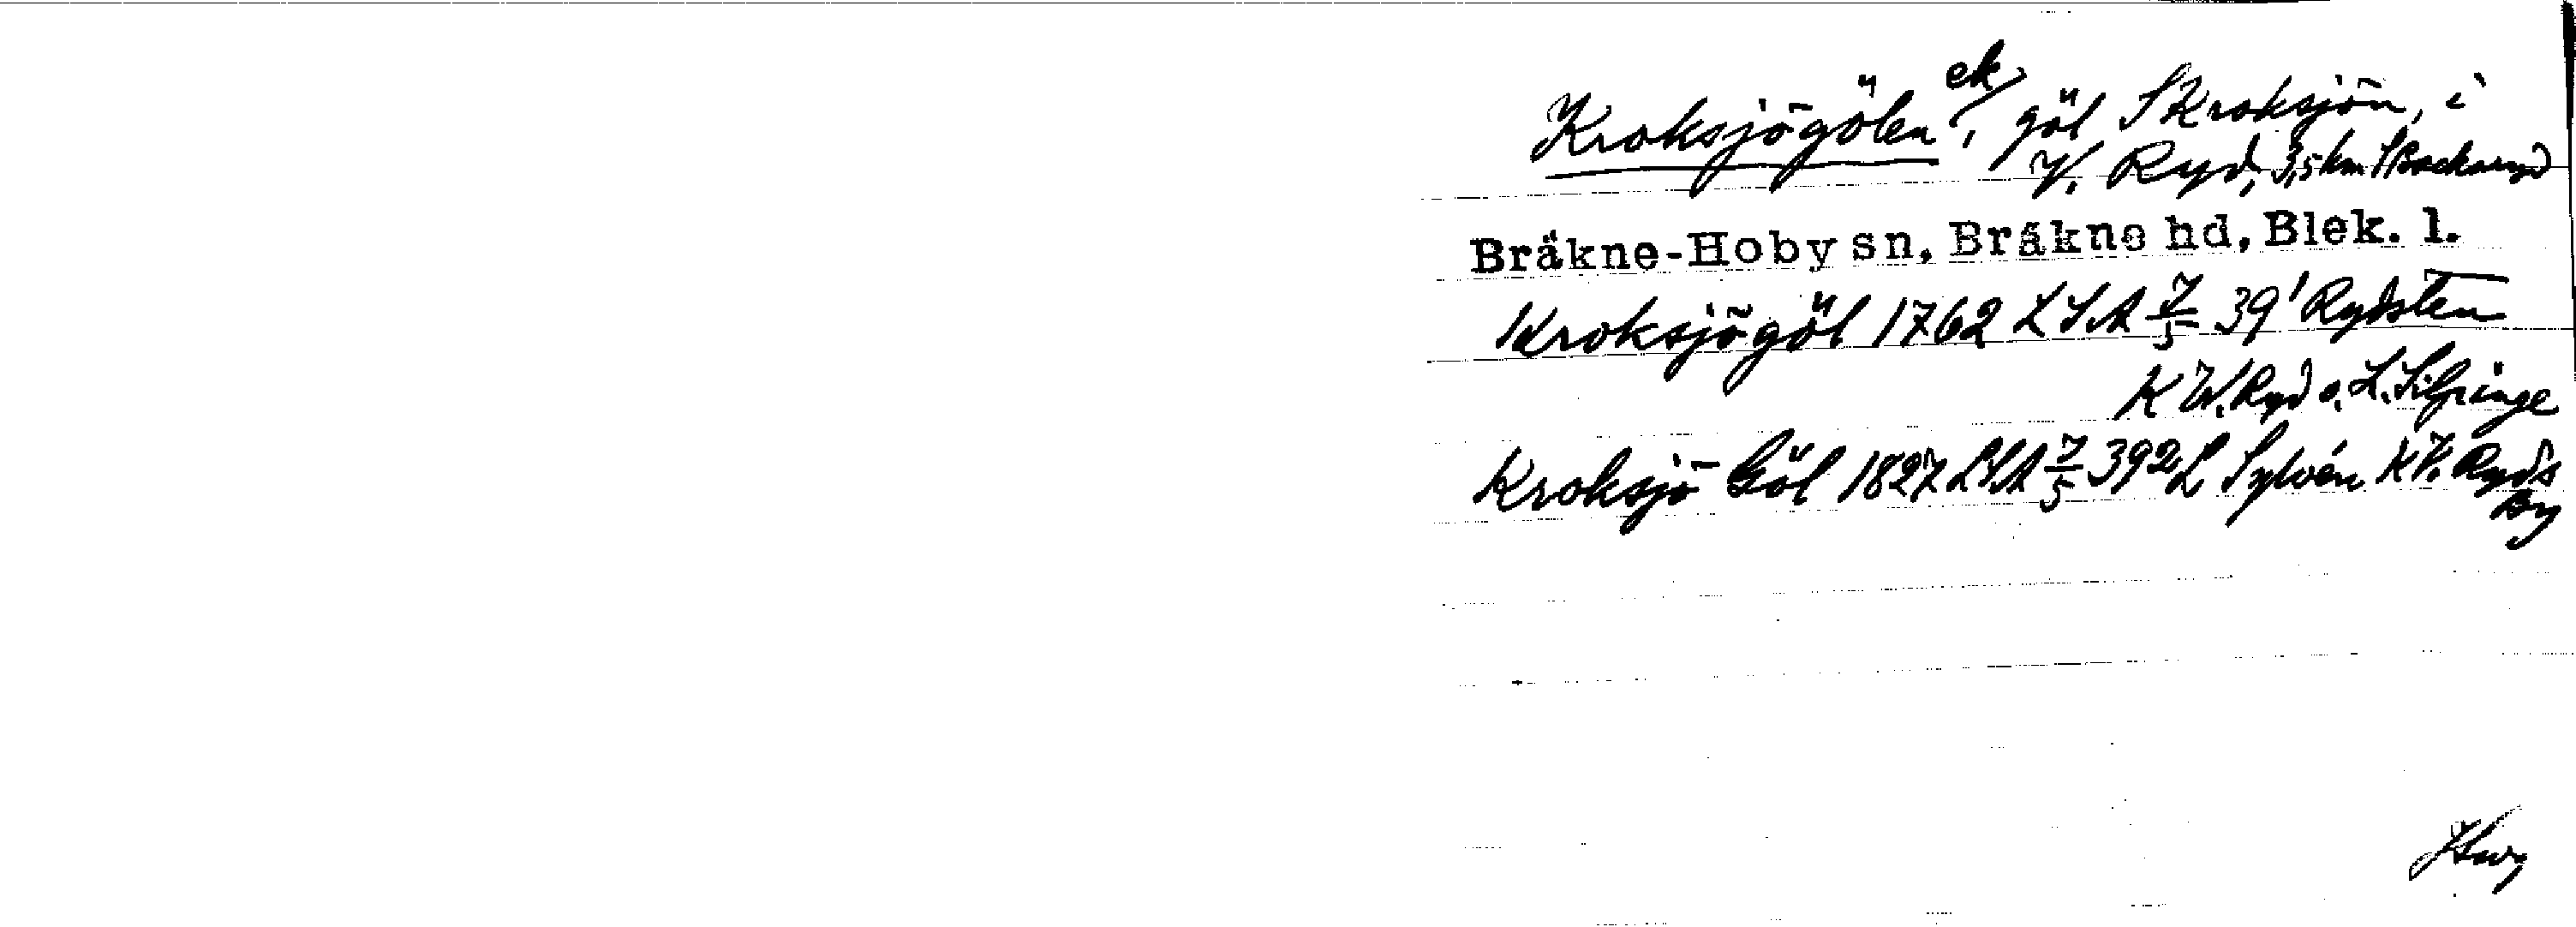 Kroksjögölen ek, göl S Kroksjön, i
V. Ryd, 3,5 km S Backaryd
Bräkne-Hoby sn, Bräkne hd, Blek. l.
Kroksjögöl 1762 LSA 7/5 39¹ Rydsten
K W. Ryd o. L. Silpinge
Kroksjö Göl 1827 LSA 7/5 392 L Sylvén K V. Ryds
By